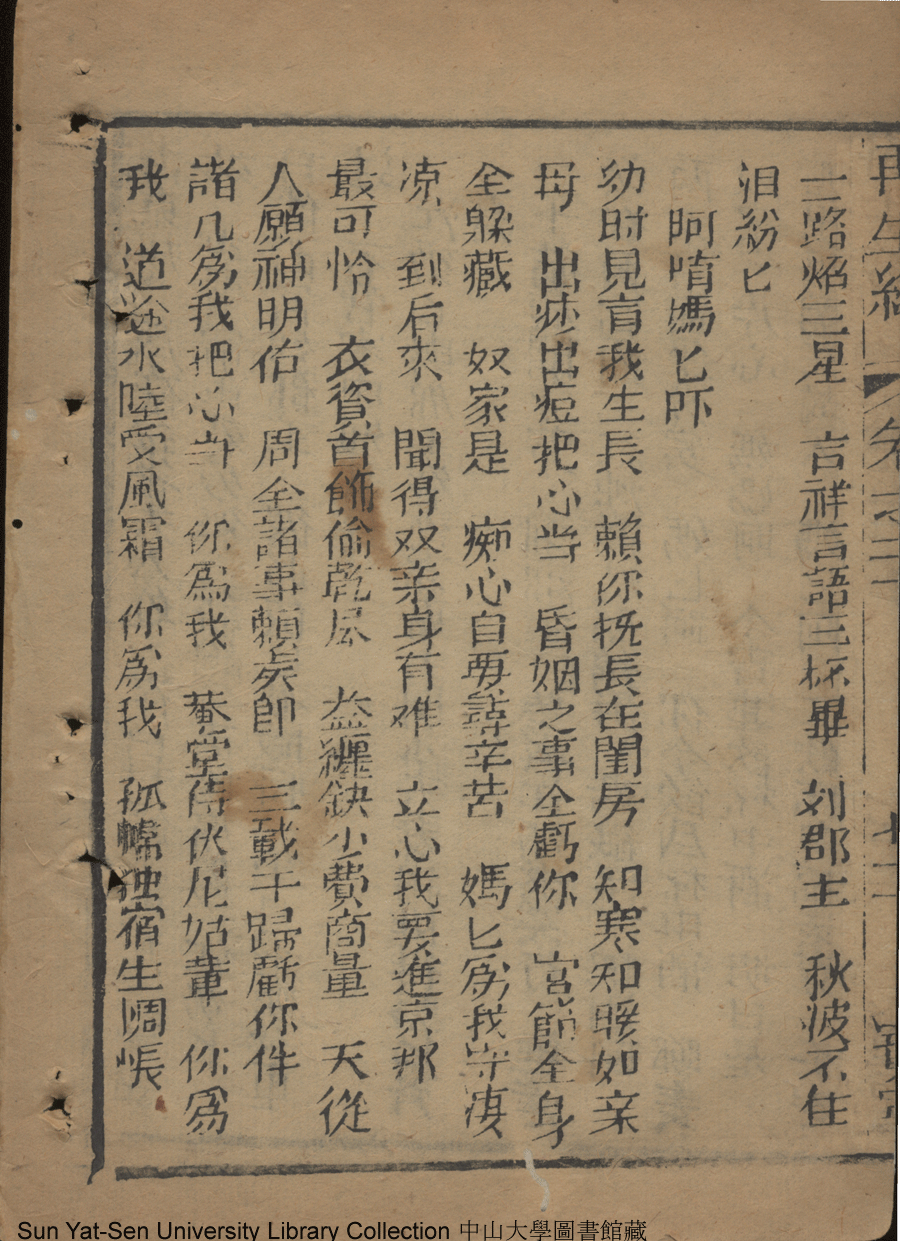 再生緣
一路焰三星 言祥言語三杯畢 刘郡主 秋波不住
泪紛匕
阿唷媽匕吓
幼时見育我生長 賴你抚長在閨房 知寒知暖如亲
母 出痳出痘把心当 昏姻之事全虧你 宮節全身
全躲藏 奴家是 痴心自要尋辛苦 媽匕為我守凄
凉 到后來 聞得双亲身有难 立心我要進京邦
最可怜 衣資首飾偷乾尽 盘纏缺少費商量 天從
人願神明佑 周全諸事賴 三載干歸虧你件
諸凡為我把心 你為我 菴堂侍伏尼姑輩 你為
我 道途水陸受風霜 你為我 孤幃独宿生凋帳
Sun Yat-Sen University Library Collection 中山大學圖書館藏